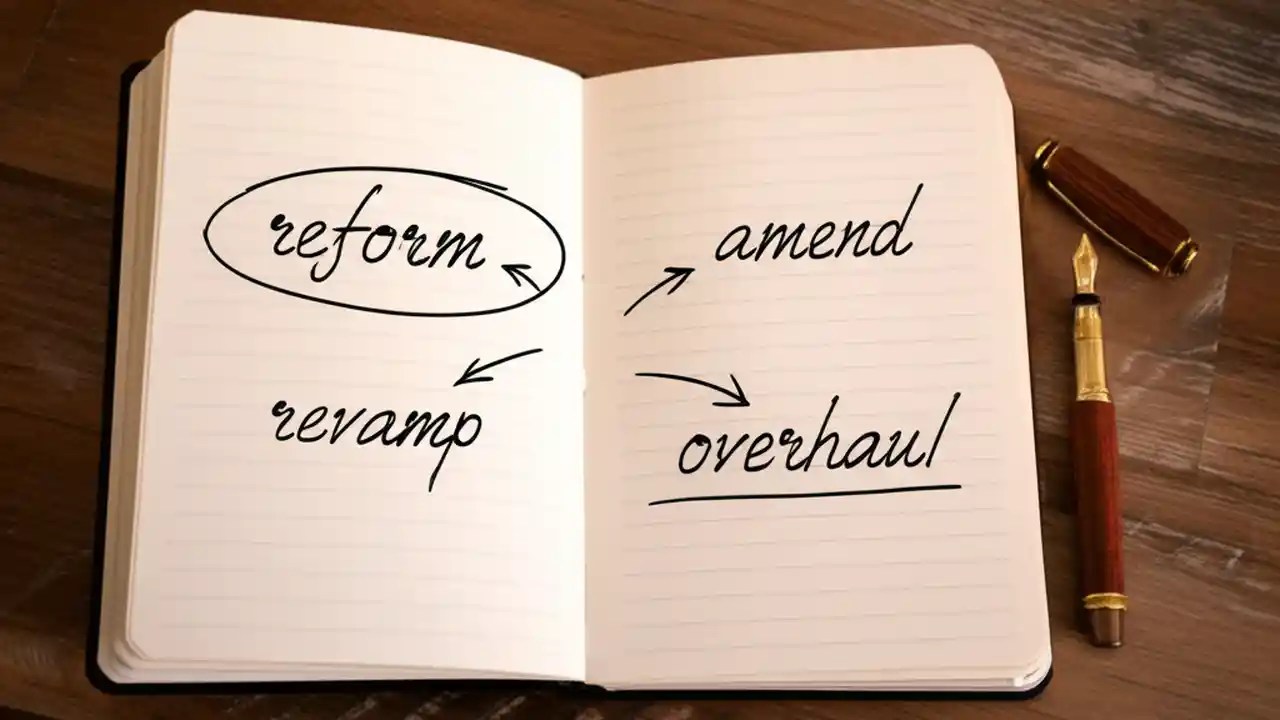 reform
revamp
amend
overhaul